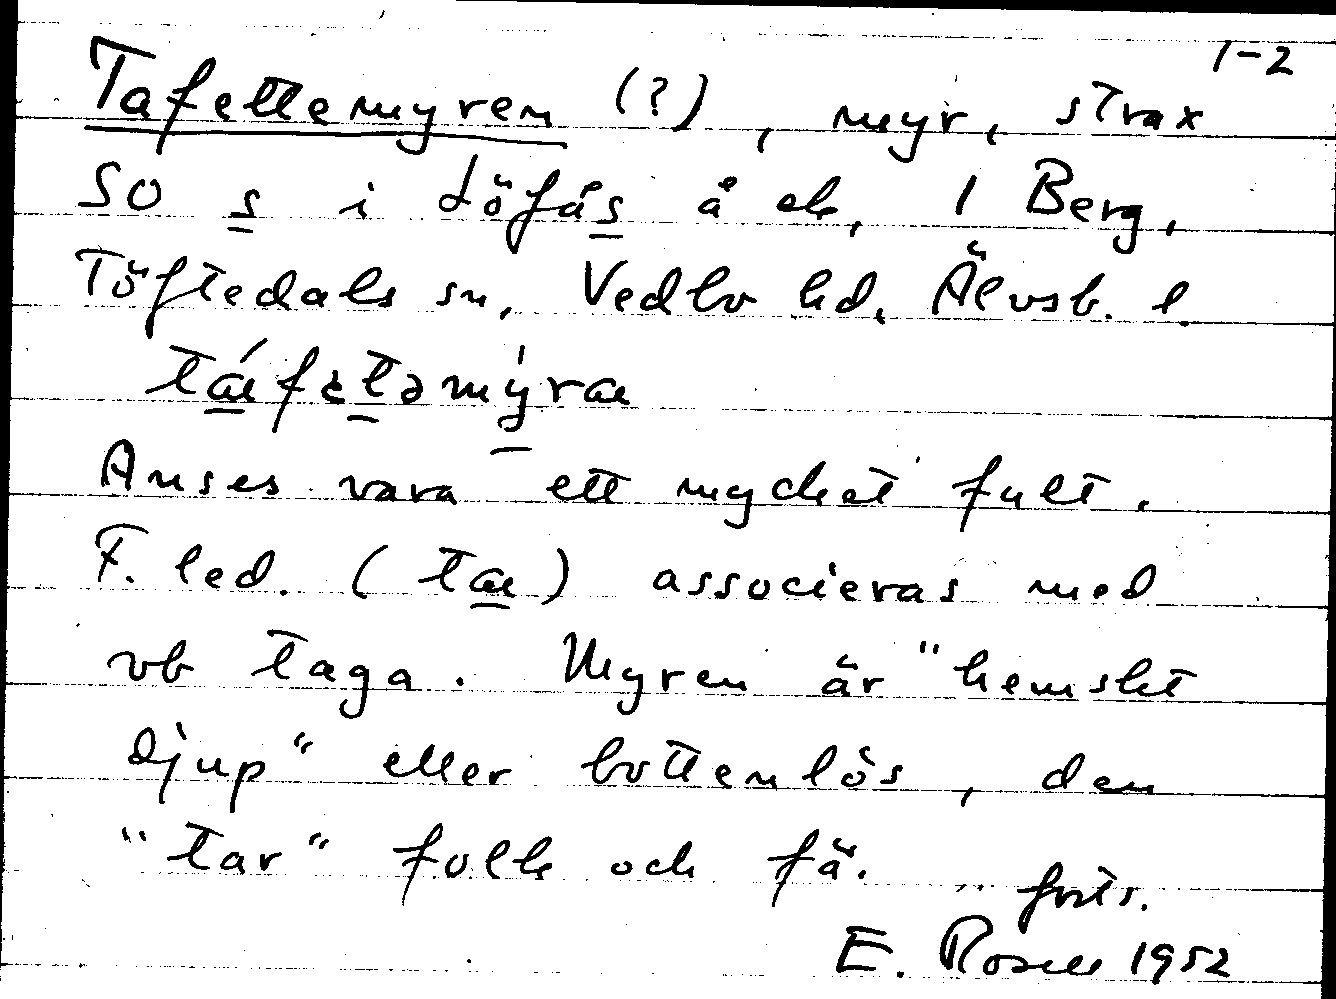 1-2
Tafettemyren (?), myr, strax
SO s i Löfås å ek, 1 Berg,
Töftedals sn, Vedbo hd, Älvsb. l.
tǽfetəmýra
Anses vara ett mycket fult.
F. led. (tæ) associeras med
vb taga. Myren är "hemskt
djup" eller bottenlös, den
"tar" folk och fä.
forts.
E. Rosell 1952